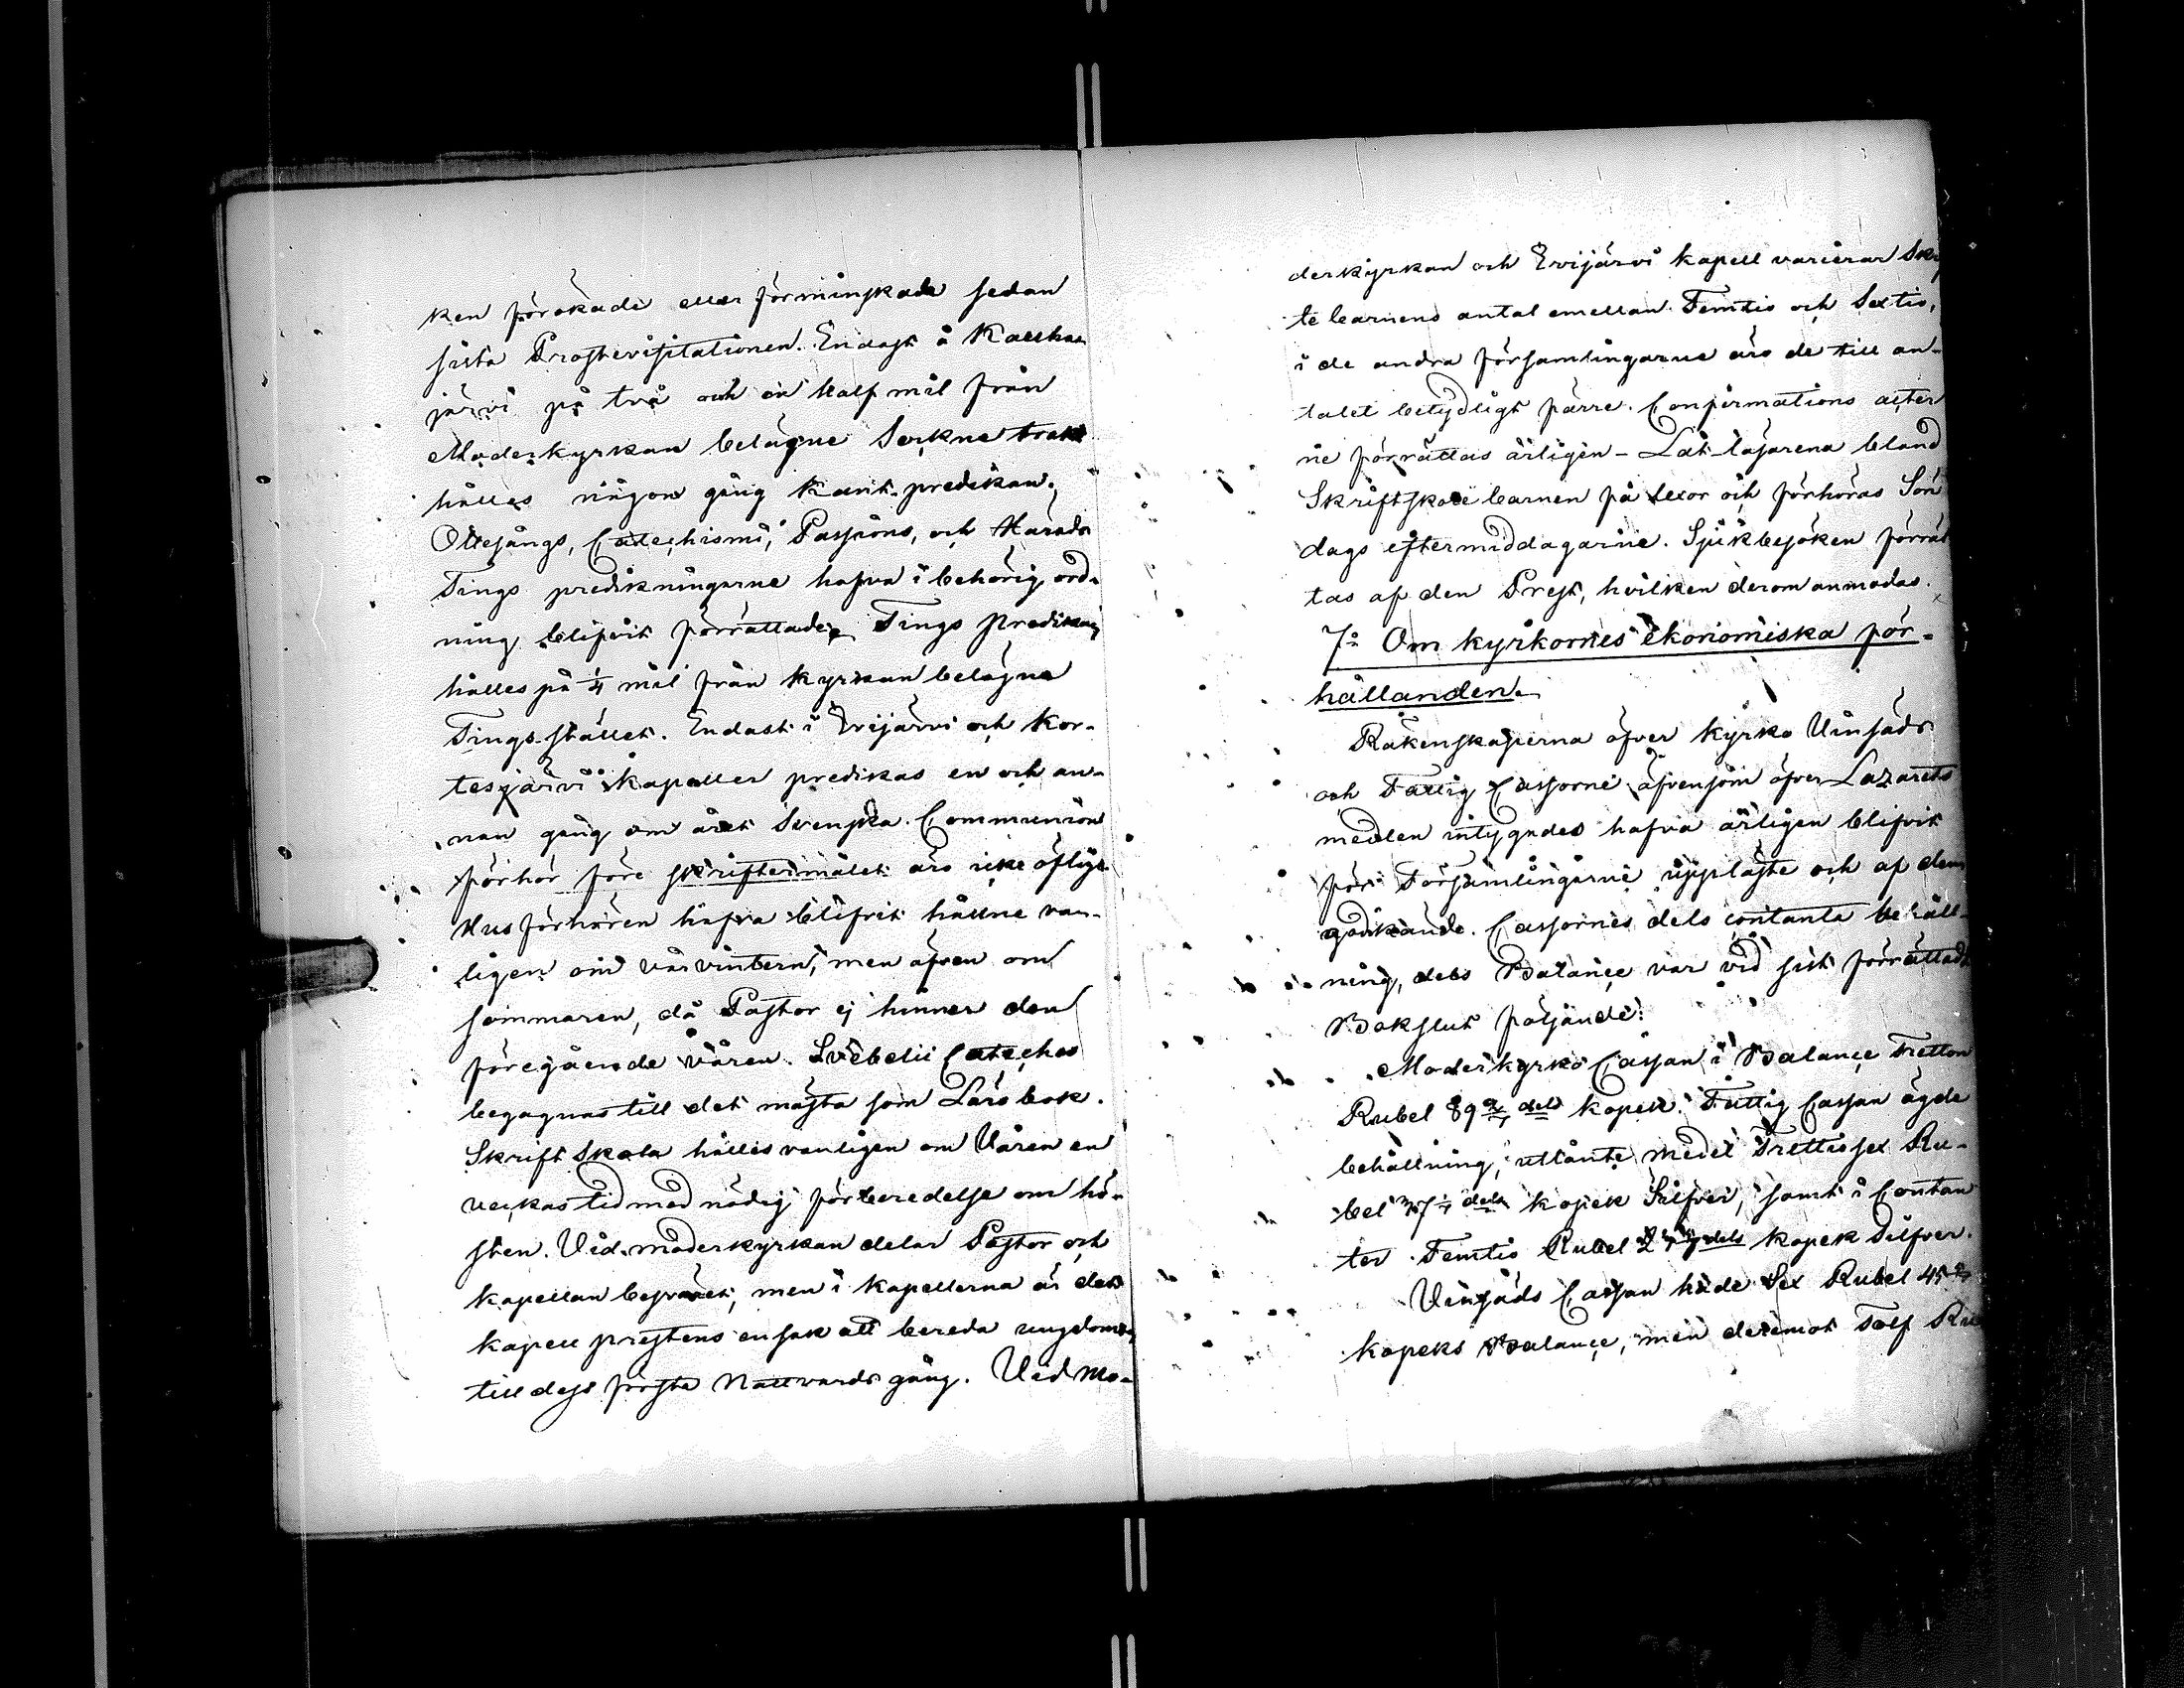 ken förökade eller förminskade sedan
sista Prostevisitationen. Endast å Kauha-
järvi på två och en half mil från
Moderkyrkan belägne Sockne trakt
hålles någon gång Kavit-predikan.
Ottesångs, Catechismi, Passions, och Härads
Tings predikningarne hafva i behörig ord-
ning blifvit förrättade. Tings predikan
hålles på 1/4 mil från kyrkan belägna
Tings stället. Endast i Evijärvi och Kor-
tesjärvi kapeller predikas en och an-
nan gång om året Svenska. Communion
förhör före skriftermålet äro icke öflige
Husförhören hafva blifvit hållne van-
ligen om vårvintern, men äfven om
sommaren, då Pastor ej hinner den
föregående våren. Svebelii Cateches
begagnas till det mästa som Läro bok.
Skrift Skola hålles vanligen om Våren en
veckas tid med nödig förberedelse om hö-
sten. Vid moderkyrkan delar Pastor och
kapellan besväret, men i kapellerna är det
kapell prestens ensak att bereda ungdomen
till dess första Nattvards gång. Vid Mo-
derkyrkan och Evijärvi kapell varierar Skrif
te barnens antal emellan Femtio och Sextio,
i de andra församlingarne äro de till an-
talet betydligt färre. Confirmations acter
ne förrättas årligen - Lät-läsarena bland
Skriftskole barnen få lexor och förhöras Sön
dags eftermiddagarne. Sjukbesöken förrät
tas af den Prest, hvilken derom anmodas.
7:o Om kyrkornes ekonomiska för-
hållanden.
Räkenskaperna öfver kyrko Vinsäds
och Fattig Cassorne äfvensom öfver Lazarets
medlen intygades hafva årligen blifvit
för Församlingarne uppläste och af dem
godkände. Cassornes dels contanta behåll-
ning, dels Balance var vid sist förrättade
Bokslut följande:
Moderkyrko Cassan i Balance Tretton
Rubel 89 dels kopek. Fattig Cassan ägde
behållning, utlånte medel Trettiosex Ru-
bel dels kopek Silfver, samt i Contan
ter Femtio Rubel dels kopek Silfver.
Vinsäds Cassan hade Sex Rubel 45
kopeks Balance, men deremot Tolf Ru